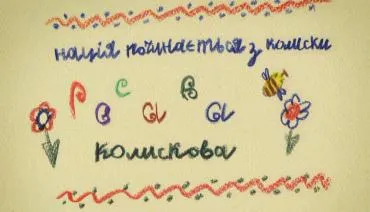 нація починається з колиски
РоСаВа
колискова